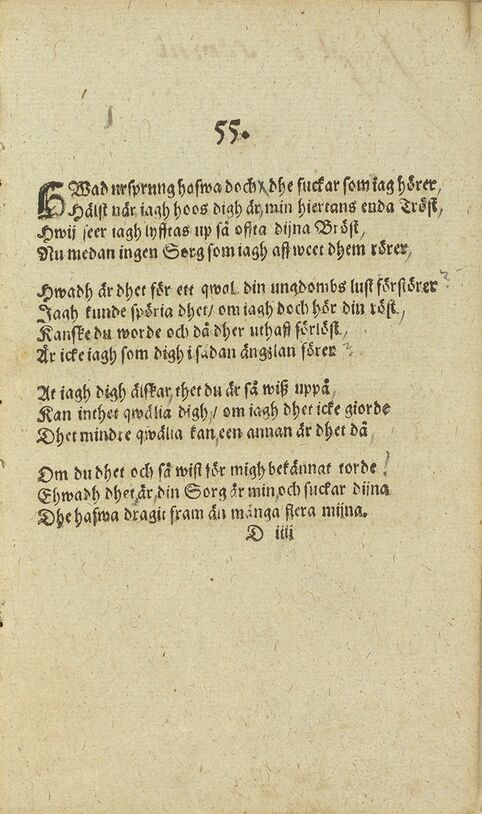 55.
HWad ursprung hafwa doch, dhe suckar som iag hörer,
Hälst när iagh hoos digh är, min hiertans enda Tröst,
Hwij seer iagh lyfftas up så offta dijna Bröst,
Nu medan ingen Sorg som iagh aff weet dhem rörer,
Hwadh är dhet för ett qwal, din ungdombs lust förstörer?
Jagh kunde spöria dhet, om iagh doch hör din röst,
Kanske du worde och då dher uthaff förlöst,
Är icke iagh som digh i sådan ängslan förer?
At iagh digh älskar, thet du är så wiß uppå,
Kan inthet qwälia digh, om iagh dhet icke giorde
Dhet mindre qwälia kan, een annan är dhet då,
Om du dhet och så wist för migh bekännat torde!
Ehwadh dhet är, din Sorg är min, och suckar dijna
Dhe hafwa dragit fram än många flera mijna.
D iiij